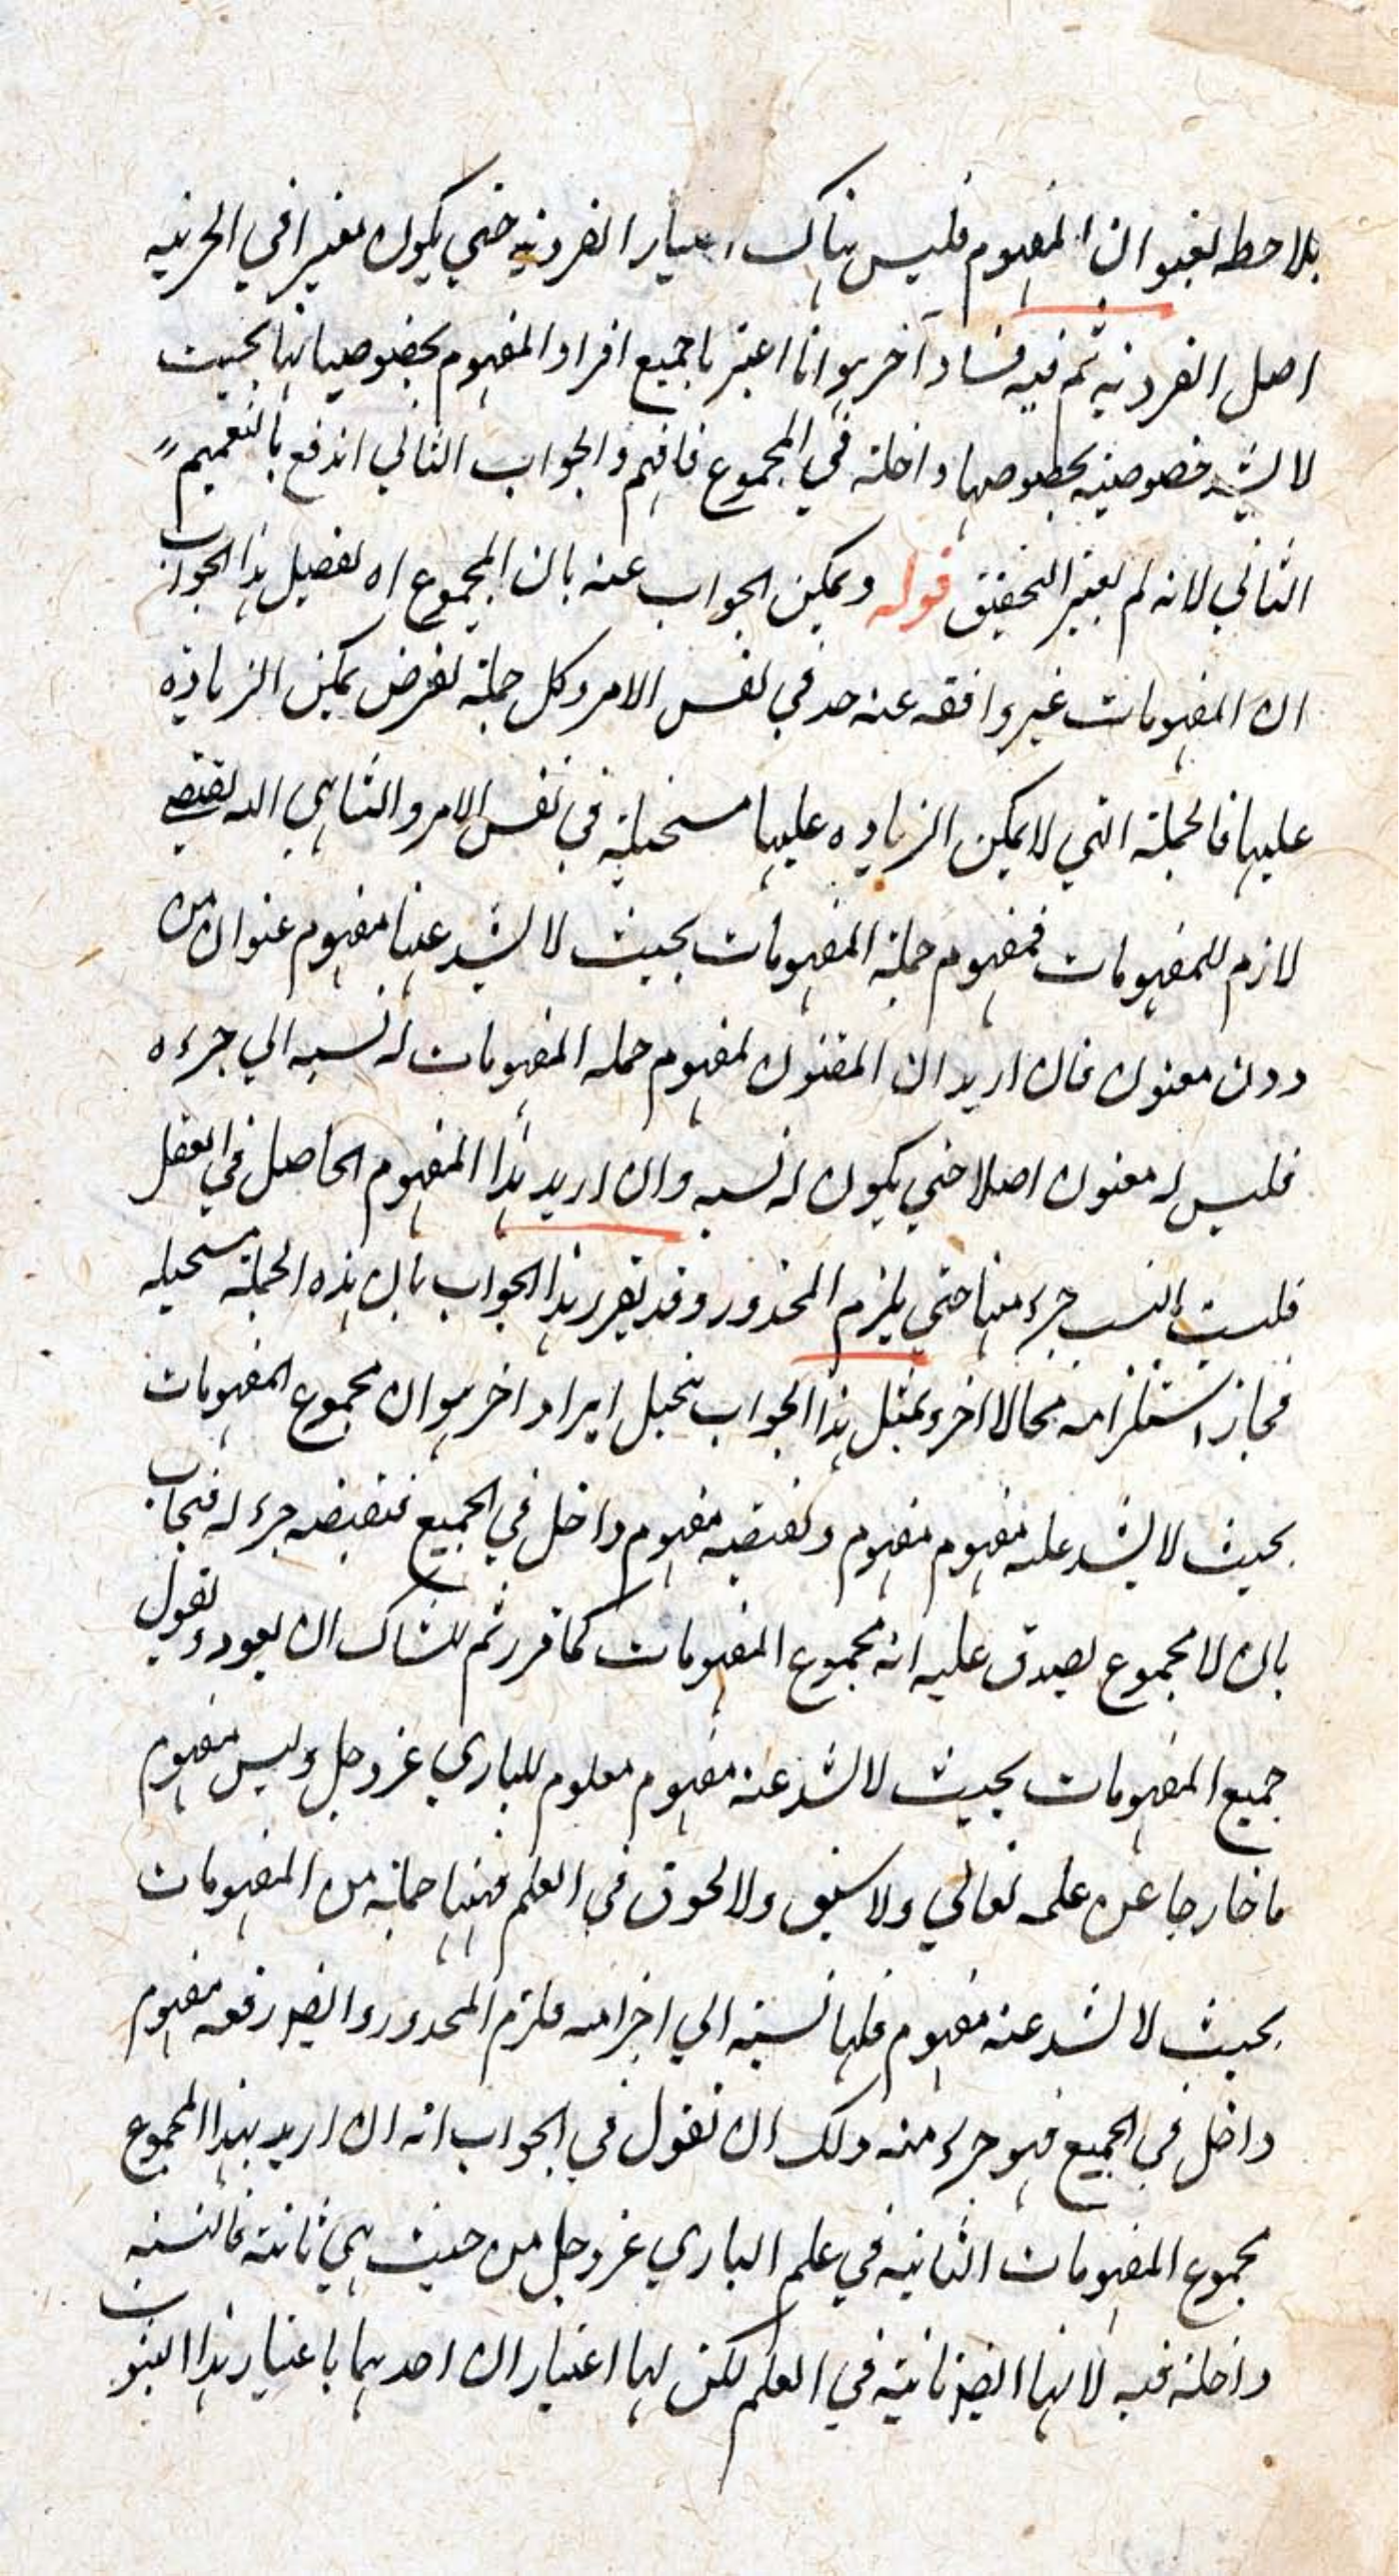 بلاحظه بعنوان المفهوم فليس هناك اعتبار الفردية حتى يكون معتبرا في الجزئية
اصل الفردية ثم فيه فساد آخر هو انا اعتبرنا جميع افراد المفهوم بخصوصياتها بحيث
لا يشذ خصوصية بخصوصها داخلة في المجموع فافهم والجواب الثاني اندفع بالتعميم
الثاني لانه لم يعتبر التحقيق قوله ويمكن الجواب عنه بان المجموع اه تفصيل هذا الجواب
ان المفهومات غير واقفة عند حد في نفس الامر وكل جملة تفرض يمكن الزيادة
عليها فالجملة التي لا يمكن الزيادة عليها مستحيلة في نفس الامر والتناهي
لازم للمفهومات فمفهوم جملة المفهومات بحيث لا يشذ عنها مفهوم عنوان من
دون معنون فان اريد ان المعنون لمفهوم جملة المفهومات له نسبة الى جزءه
فليس له معنون اصلا حتى يكون له نسبة وان اريد هذا المفهوم الحاصل في العقل
فليست النسب جزء منها حتى يلزم المحذور وقد يقرر هذا الجواب بان هذه الجملة مستحيلة
فجاز استلزامه محالا اخر وبمثل هذا الجواب ينحل ايراد اخر هو ان مجموع المفهومات
بحيث لا يشذ عنه مفهوم مفهوم ونقيضه مفهوم داخل في الجميع فنقيضه جزء له فيجاب
بان لا مجموع يصدق عليه انه مجموع المفهومات كما قرر ثم للشاك ان يعود ويقول
جميع المفهومات بحيث لا يشذ عنه مفهوم معلوم للباري عز وجل وليس مفهوم
ما خارجا عن علمه تعالى ولا سبق ولا لحوق في العلم فههنا جملة من المفهومات
بحيث لا يشذ عنه مفهوم فلها نسبة الى اجزائه فلزم المحذور وايضا رفعه مفهوم
داخل في الجميع فهو جزء منه ولك ان تقول في الجواب انه ان اريد بهذا المجموع
مجموع المفهومات الثابتة في علم الباري عز وجل من حيث هي ثابتة فالنسبة
داخلة فيه لانها ايضا ثابتة في العلم لكن لها اعتباران احدهما باعتبار هذا الثبوت